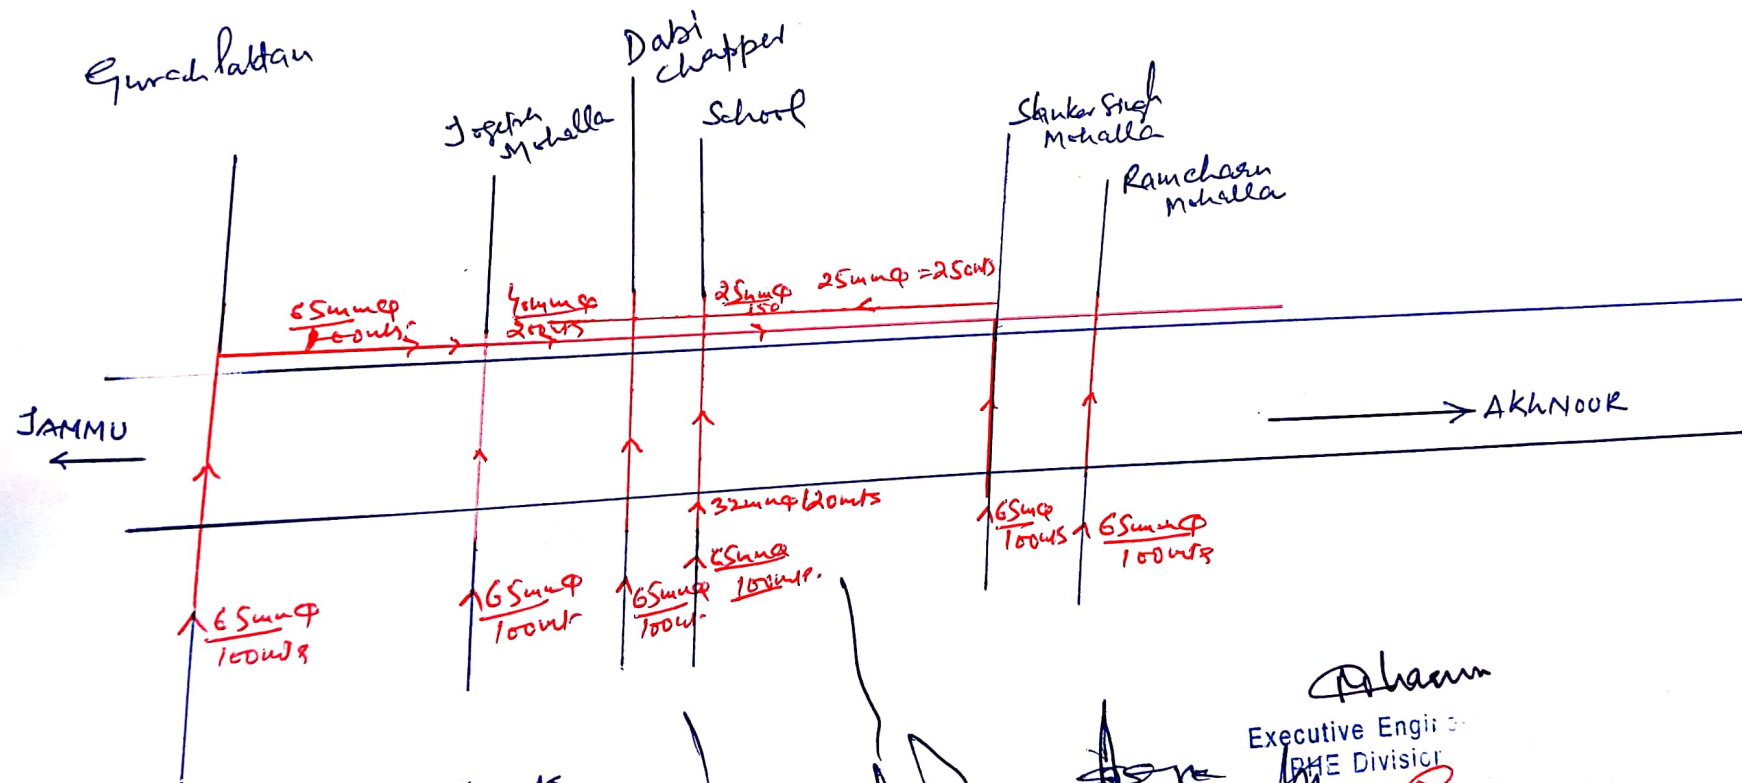 Dabi
Chapper
School
Mohalla
Shanker Singh
Mohalla
Ramcharn
Mohalla
65mmφ
100mts
40mmφ
200mts
25mmφ
150
25mmφ = 250mts
JAMMU
AKHNOOR
32mmφ 120mts
65mφ
100mts
65mmφ
100mts
65mmφ
100mts.
65mmφ
100mt
65mmφ
100mt.
65mmφ
100mts
Executive Engin
PHE Division